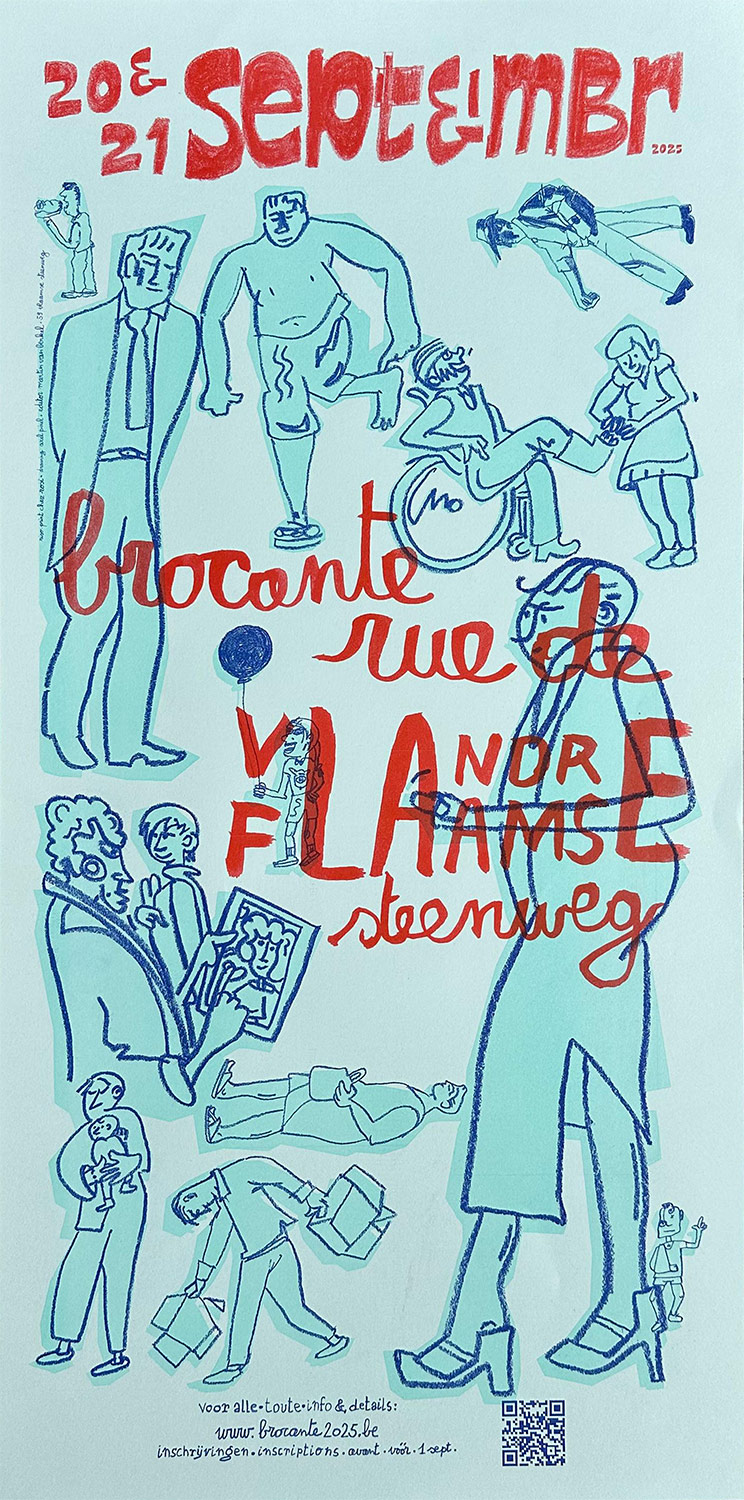 20 &
21 septembr
2025
brocante
rue de
VLANDRE
FLAAMSE
steenweg
voor alle • toute • info & details:
www. brocante2025.be
inschrijvingen • inscriptions • avant • vóór • 1 sept.